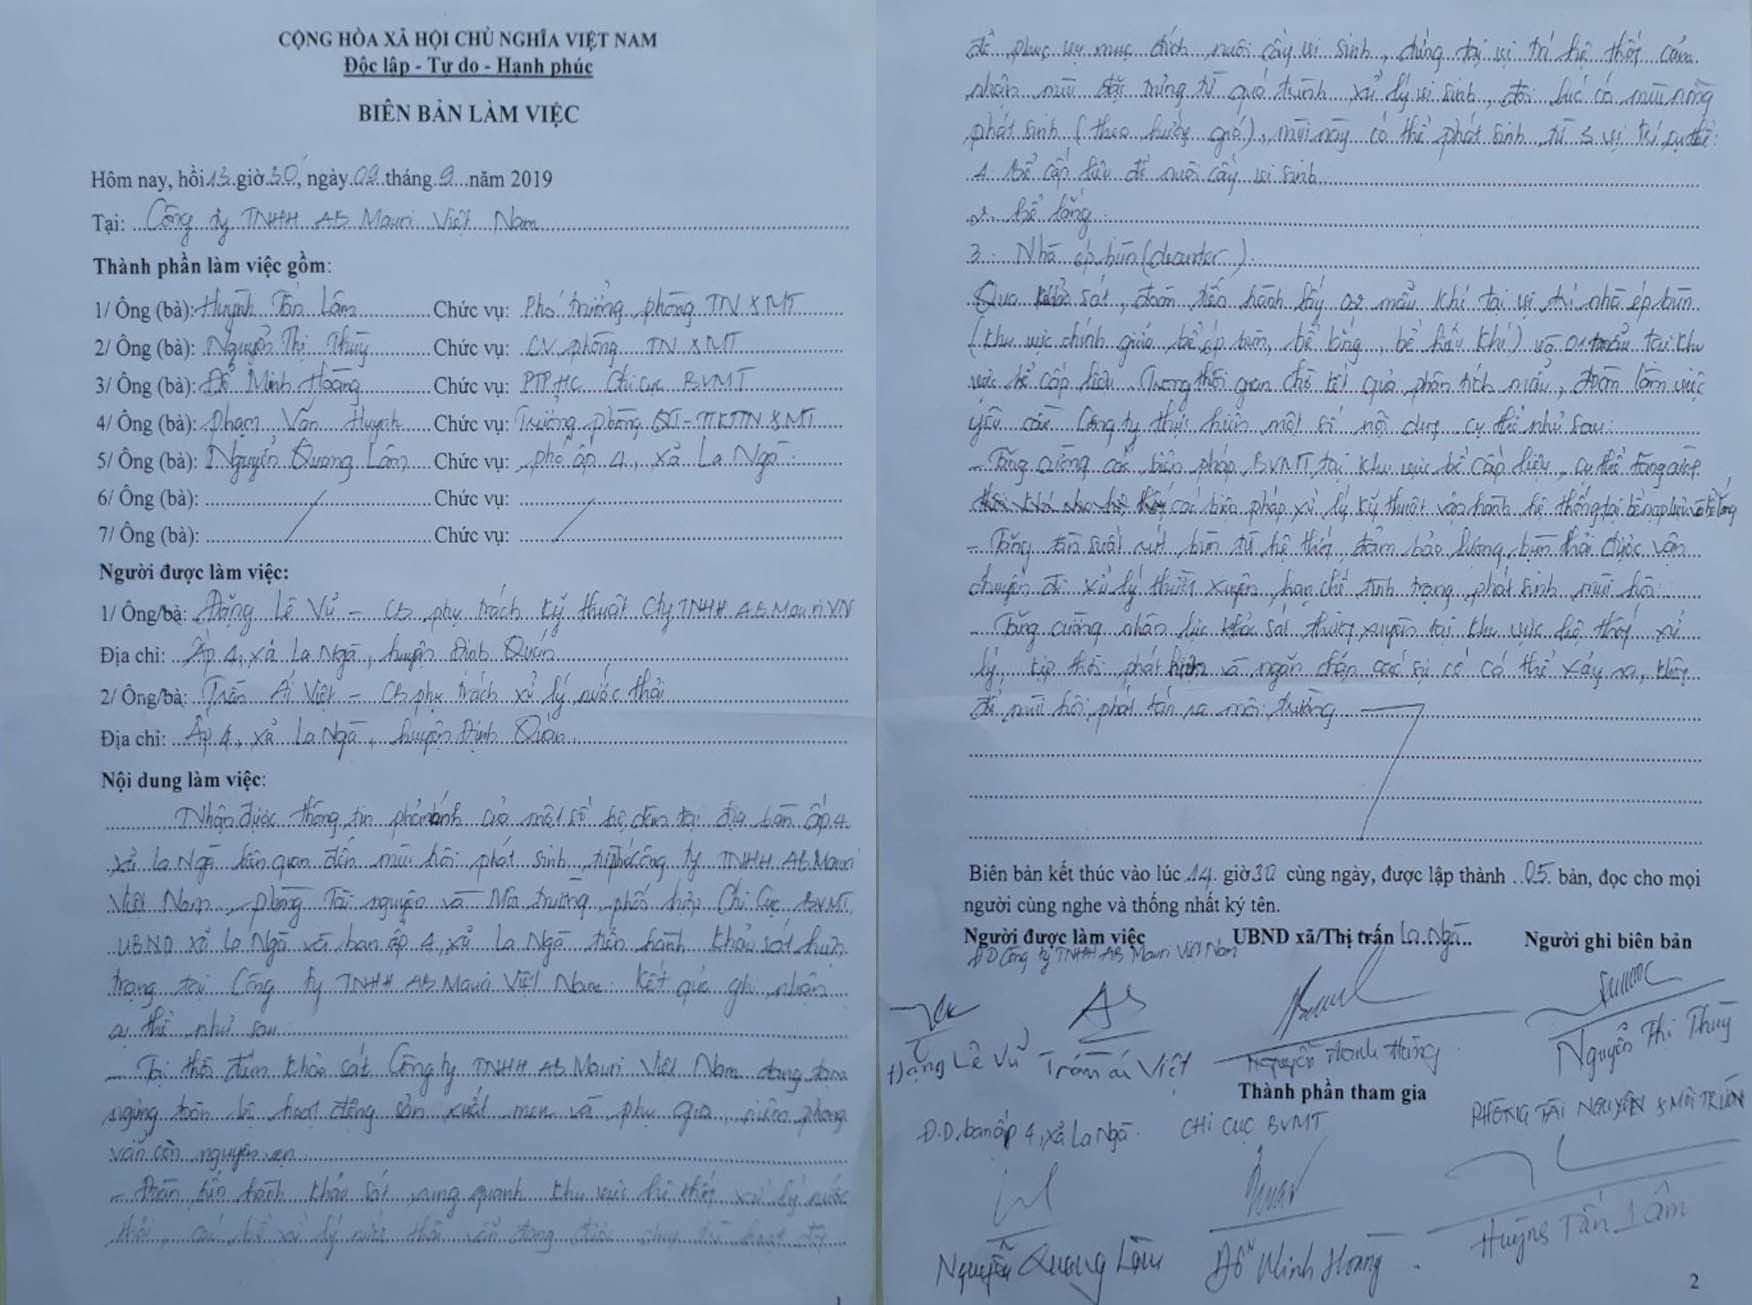 CỘNG HÒA XÃ HỘI CHỦ NGHĨA VIỆT NAM
Độc lập - Tự do - Hạnh phúc
BIÊN BẢN LÀM VIỆC
Hôm nay, hồi 13 giờ 30, ngày 09 tháng 9 năm 2019
Tại: Công ty TNHH AB Mauri Việt Nam
Thành phần làm việc gồm:
1/ Ông (bà): Huỳnh Tấn Lâm Chức vụ: Phó trưởng phòng TN & MT
2/ Ông (bà): Nguyễn Thị Thùy Chức vụ: CV phòng TN & MT
3/ Ông (bà): Đỗ Minh Hoàng Chức vụ: PTP HC Chi cục BVMT
4/ Ông (bà): Phạm Văn Huynh Chức vụ: Trưởng phòng QT-TTKTTN & MT
5/ Ông (bà): Nguyễn Quang Lâm Chức vụ: phó ấp 4, xã La Ngà
6/ Ông (bà): Chức vụ:
7/ Ông (bà): Chức vụ:
Người được làm việc:
1/ Ông/bà: Đặng Lê Vũ - CB phụ trách kỹ thuật Cty TNHH AB Mauri VN
Địa chỉ: Ấp 4, xã La Ngà, huyện Định Quán
2/ Ông/bà: Trần Ái Việt - CB phụ trách xử lý nước thải
Địa chỉ: Ấp 4, xã La Ngà, huyện Định Quán
Nội dung làm việc:
Nhận được thông tin phản ánh của một số hộ dân tại địa bàn ấp 4
xã La Ngà liên quan đến mùi hôi phát sinh từ Công ty TNHH AB Mauri
Việt Nam, phòng Tài nguyên và Môi trường phối hợp Chi Cục BVMT,
UBND xã La Ngà và ban ấp 4, xã La Ngà tiến hành khảo sát hiện
trạng tại Công ty TNHH AB Mauri Việt Nam. Kết quả ghi nhận
cụ thể như sau:
- Tại thời điểm khảo sát Công ty TNHH AB Mauri Việt Nam đang tạm
ngừng toàn bộ hoạt động sản xuất men và phụ gia, niêm phong
vẫn còn nguyên vẹn.
- Đoàn tiến hành khảo sát xung quanh khu vực hệ thống xử lý nước
thải, các bể xử lý nước thải vẫn đang được duy trì hoạt động
1
để phục vụ mục đích nuôi cấy vi sinh, đứng tại vị trí hệ thống cảm
nhận mùi đặc trưng từ quá trình xử lý vi sinh, đôi lúc có mùi nồng
phát sinh (theo hướng gió), mùi này có thể phát sinh từ 3 vị trí cụ thể:
1. Bể cấp liệu để nuôi cấy vi sinh.
2. Bể lắng.
3. Nhà ép bùn (decanter).
Qua khảo sát, đoàn tiến hành lấy 02 mẫu khí tại vị trí nhà ép bùn
(khu vực chính giữa bể ép bùn, bể lắng, bể hiếu khí) và 01 mẫu tại khu
vực bể cấp liệu. Trong thời gian chờ kết quả phân tích mẫu, đoàn làm việc
yêu cầu Công ty thực hiện một số nội dung cụ thể như sau:
- Tăng cường các biện pháp BVMT tại khu vực bể cấp liệu, cụ thể tăng cường
các biện pháp xử lý kỹ thuật vận hành hệ thống tại bể nạp liệu và bể lắng
- Tăng tần suất rút bùn từ hệ thống, đảm bảo lượng bùn thải được vận
chuyển đi xử lý thường xuyên, hạn chế tình trạng phát sinh mùi hôi.
- Tăng cường nhân lực khảo sát thường xuyên tại khu vực hệ thống xử
lý, kịp thời phát hiện và ngăn chặn các sự cố có thể xảy ra, không
để mùi hôi phát tán ra môi trường
Biên bản kết thúc vào lúc 14 giờ 30 cùng ngày, được lập thành 05 bản, đọc cho mọi
người cùng nghe và thống nhất ký tên.
Người được làm việc UBND xã/Thị trấn La Ngà Người ghi biên bản
ĐD Công ty TNHH AB Mauri Việt Nam
Đặng Lê Vũ Trần ái Việt Nguyễn Thanh Hùng Nguyễn Thị Thùy
Thành phần tham gia
Đ.D. ban ấp 4, xã La Ngà CHI CỤC BVMT PHÒNG TÀI NGUYÊN & MÔI TRƯỜNG
Nguyễn Quang Lâm Đỗ Minh Hoàng Huỳnh Tấn Lâm
2